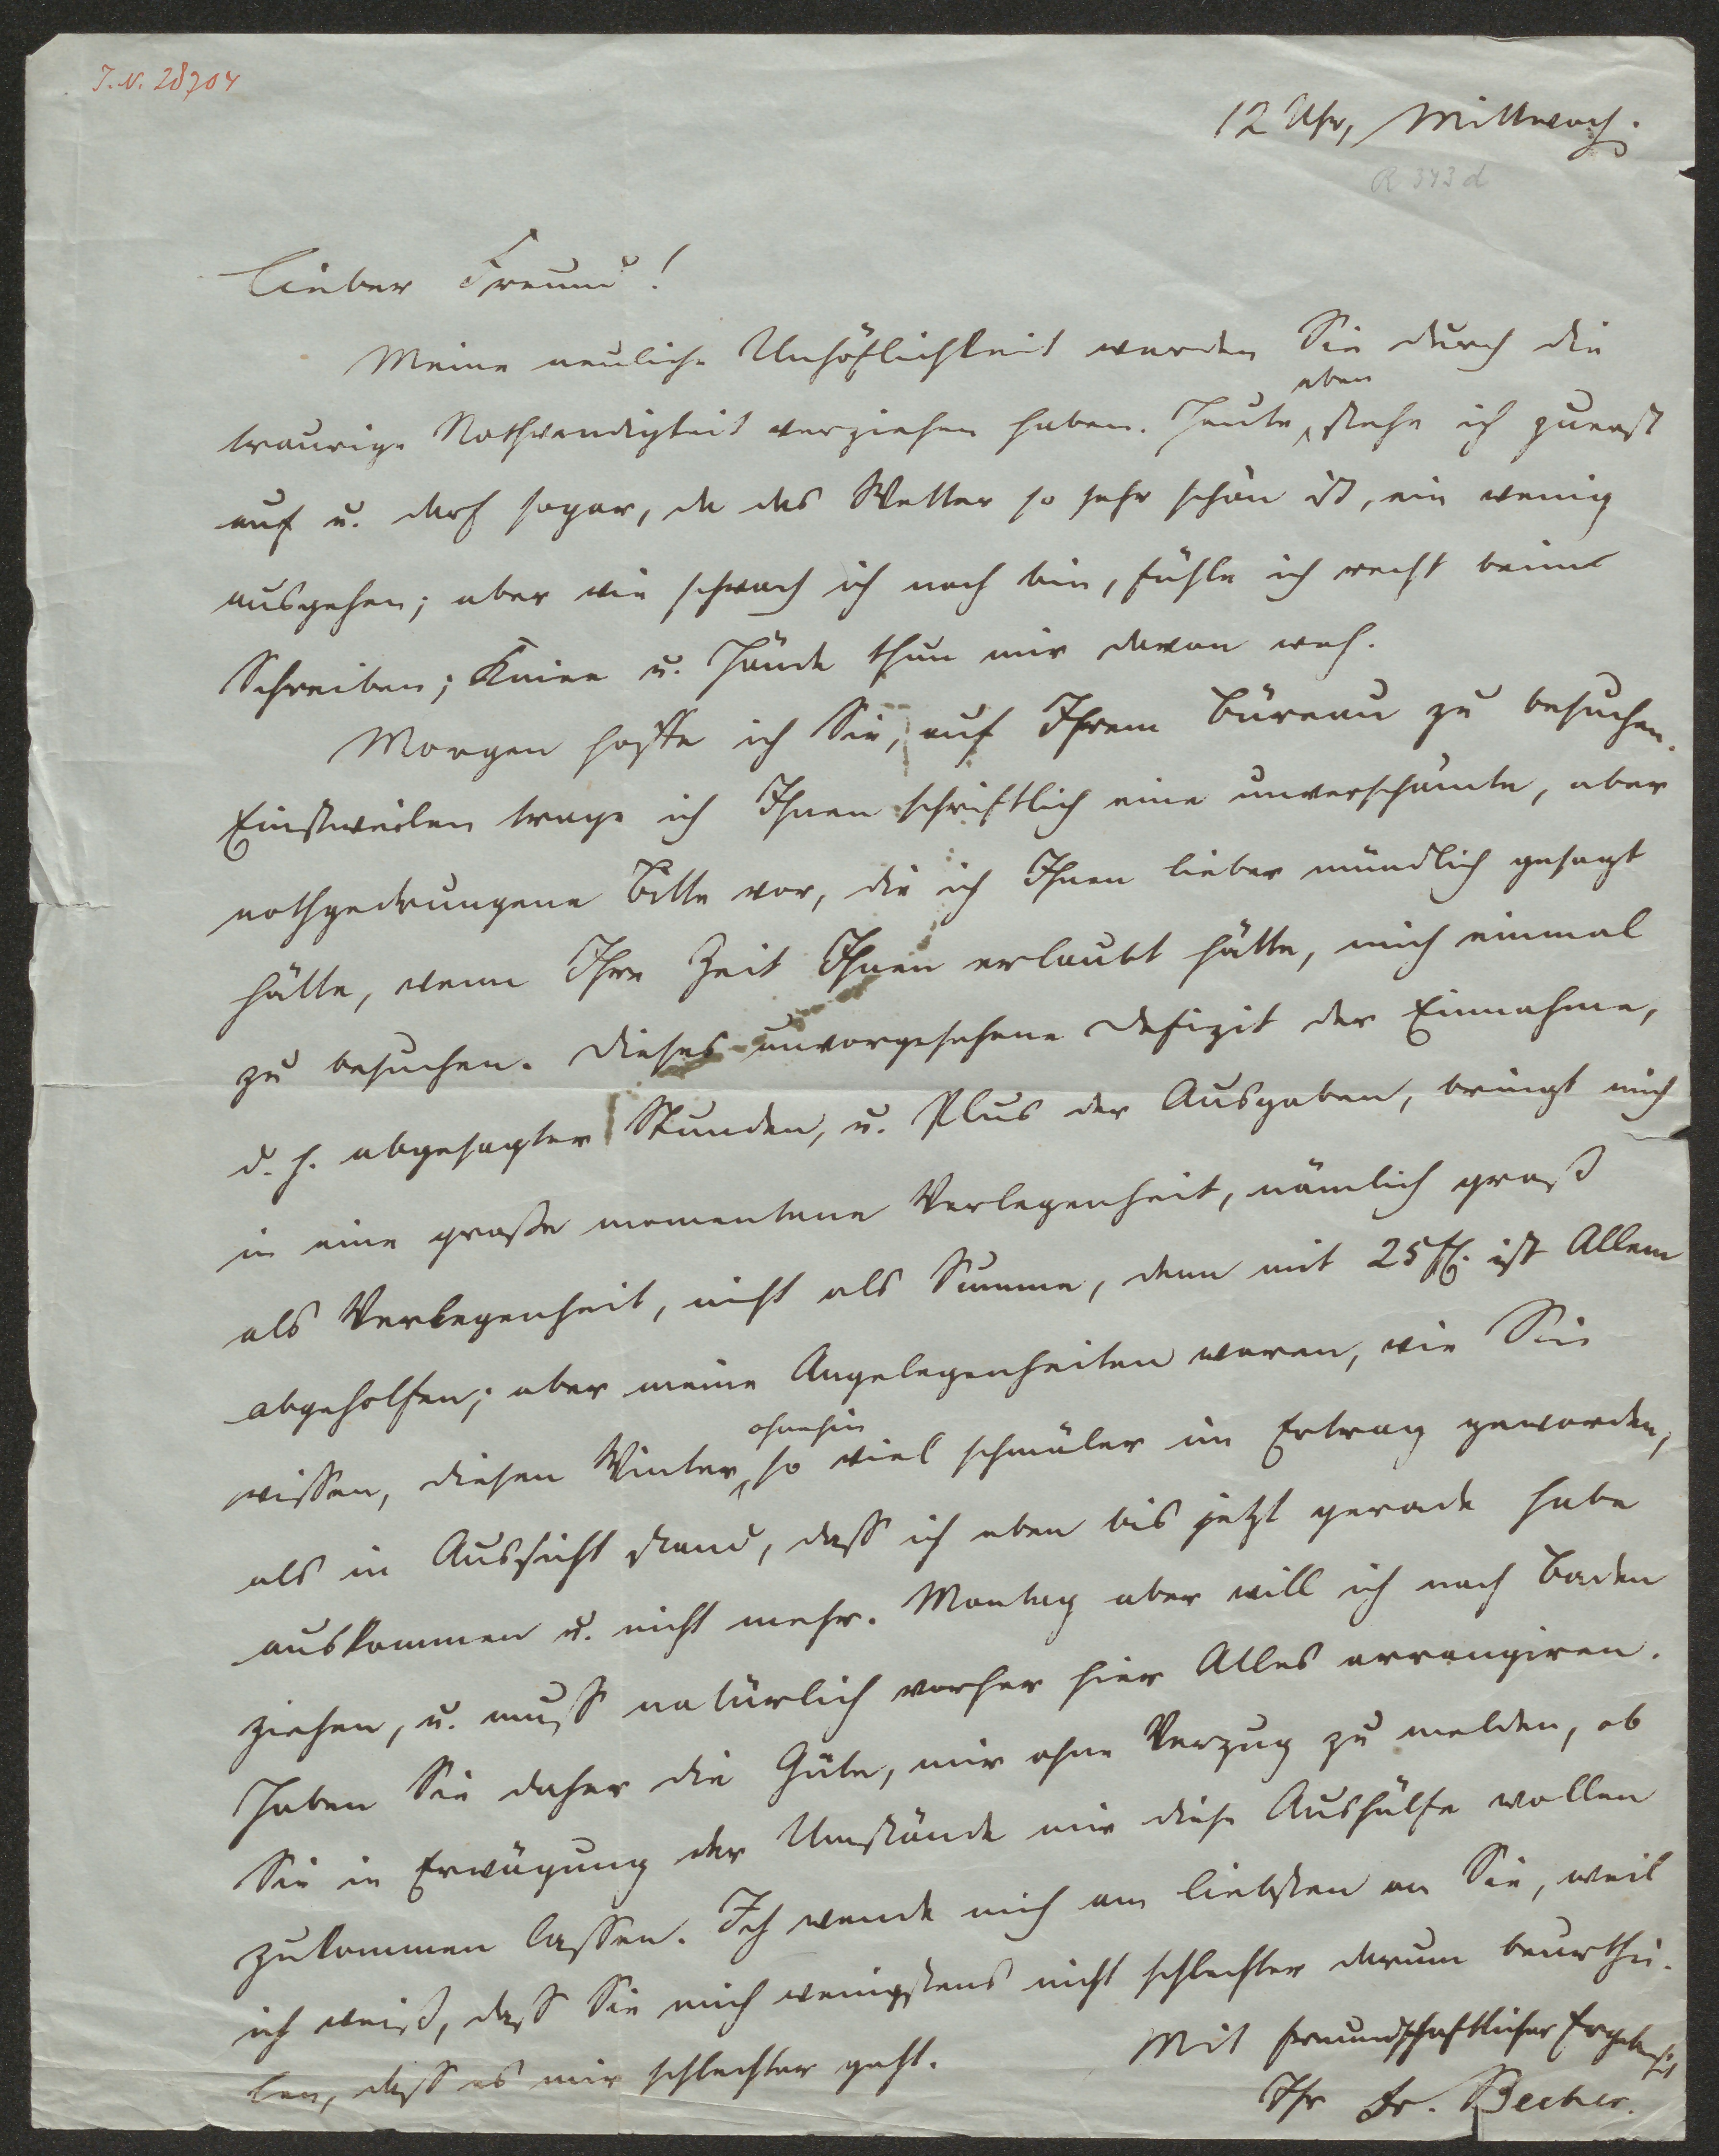 J. N. 28704
12 Uhr, Mittwoch.
R 343 d
Lieber Freund!
Meine neuliche Unhöflichkeit werden Sie durch die
eben
traurige Nothwendigkeit verziehen haben. Heute stehe ich zuerst
auf u. darf sogar, da das Wetter so sehr schön ist, ein wenig
ausgehen; aber wie schwach ich noch bin, fühle ich recht beim
Schreiben; Kniee u. Hände thun mir davon weh.
Morgen hoffe ich Sie, auf Ihrem Büreau zu besuchen.
Einstweilen trage ich Ihnen schriftlich eine unverschämte, aber
nothgedrungene Bitte vor, die ich Ihnen lieber mündlich gesagt
hätte, wenn Ihre Zeit Ihnen erlaubt hätte, mich einmal
zu besuchen. Dieses unvorgesehene Defizit der Einnahme,
d. h. abgesagter Stunden, u. Plus der Ausgaben, bringt mich
in eine große momentane Verlegenheit, nämlich groß
als Verlegenheit, nicht als Summe, denn mit 25 fl. ist Allem
abgeholfen; aber meine Angelegenheiten waren, wie Sie
ohnehin
wissen, diesen Winter so viel schmäler im Ertrag geworden,
als in Aussicht stand, daß ich eben bis jetzt gerade habe
auskommen u. nicht mehr. Montag aber will ich nach Baden
ziehen, u. muß natürlich vorher hier Alles arrangiren.
Haben Sie daher die Güte, mir ohne Verzug zu melden, ob
Sie in Erwägung der Umstände mir diese Aushülfe wollen
zukommen lassen. Ich wende mich am liebsten an Sie, weil
ich weiß, daß Sie mich wenigstens nicht schlechter darum beurthei-
len, daß es mir schlechter geht.
Mit freundschaftlicher Ergebenheit
Ihr Dr. Becher.